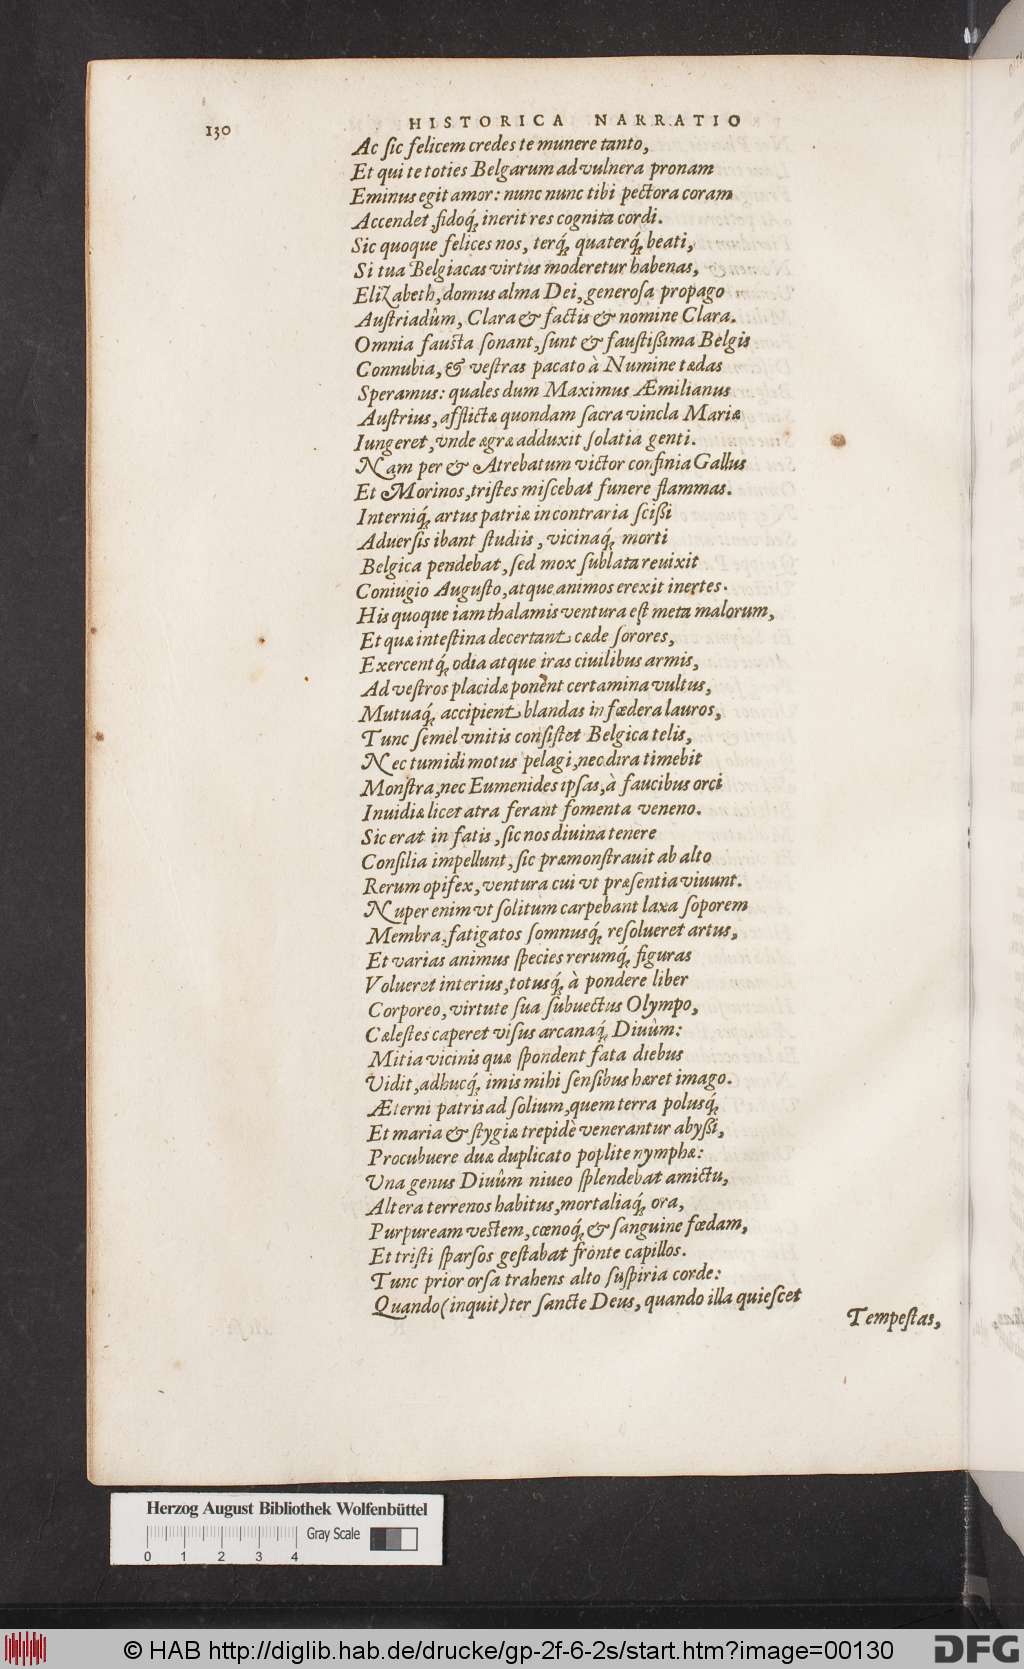 130
HISTORICA NARRATIO
Ac sic felicem credes te munere tanto,
Et qui te toties Belgarum ad vulnera pronam
Eminus egit amor: nunc nunc tibi pectora coram
Accendet, fidoq́; inerit res cognita cordi.
Sic quoque felices nos, terq́; quaterq́; beati,
Si tua Belgiacas virtus moderetur habenas,
Elizabeth, domus alma Dei, generosa propago
Austriadûm, Clara & factis & nomine Clara.
Omnia fausta sonant, sunt & faustißima Belgis
Connubia, & vestras pacato à Numine tædas
Speramus: quales dum Maximus Æmilianus
Austrius, afflictæ quondam sacra vincla Mariæ
Iungeret, vnde ægræ adduxit solatia genti.
Nam per & Atrebatum victor confinia Gallus
Et Morinos, tristes miscebat funere flammas.
Interniq́; artus patriæ in contraria scißi
Aduersis ibant studiis, vicinaq́; morti
Belgica pendebat, sed mox sublata reuixit
Coniugio Augusto, atque animos erexit inertes.
His quoque iam thalamis ventura est meta malorum,
Et quæ intestina decertant cæde sorores,
Exercentq́; odia atque iras ciuilibus armis,
Ad vestros placidæ ponent certamina vultus,
Mutuaq́; accipient blandas in fœdera lauros,
Tunc semel vnitis consistet Belgica telis,
Nec tumidi motus pelagi, nec dira timebit
Monstra, nec Eumenides ipsas, à faucibus orci
Inuidiæ licet atra ferant fomenta veneno.
Sic erat in fatis, sic nos diuina tenere
Consilia impellunt, sic præmonstrauit ab alto
Rerum opifex, ventura cui vt præsentia viuunt.
Nuper enim vt solitum carpebant laxa soporem
Membra, fatigatos somnusq́; resolueret artus,
Et varias animus species rerumq́; figuras
Volueret interius, totusq́; à pondere liber
Corporeo, virtute sua subuectus Olympo,
Cælestes caperet visus arcanaq́; Diuûm:
Mitia vicinis quæ spondent fata diebus
Vidit, adhucq́; imis mihi sensibus hæret imago.
Æterni patris ad solium, quem terra polusq́;
Et maria & stygiæ trepidè venerantur abyßi,
Procubuere duæ duplicato poplite nymphæ:
Una genus Diuûm niueo splendebat amictu,
Altera terrenos habitus, mortaliaq́; ora,
Purpuream vestem, cœnoq́; & sanguine fœdam,
Et tristi sparsos gestabat fronte capillos.
Tunc prior orsa trahens alto suspiria corde:
Quando (inquit) ter sancte Deus, quando illa quiescet
Tempestas,
Herzog August Bibliothek Wolfenbüttel
Gray Scale
0 1 2 3 4
© HAB http://diglib.hab.de/drucke/gp-2f-6-2s/start.htm?image=00130
DFG